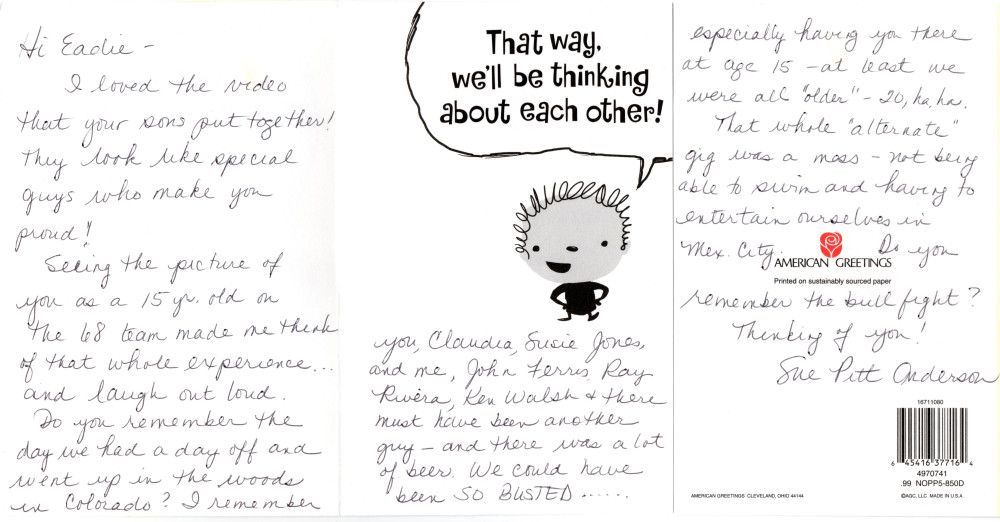 Hi Eadie -
I loved the video
that your sons put together!
They look like special
guys who make you
proud!
Seeing the picture of
you as a 15 yr. old on
the 68 team made me think
of that whole experience...
and laugh out loud.
Do you remember the
day we had a day off and
went up in the woods
in Colorado? I remember
That way,
we'll be thinking
about each other!
you, Claudia, Susie Jones,
and me, John Ferris, Ray
Rivera, Ken Walsh & there
must have been another
guy - and there was a lot
of beer. We could have
been SO BUSTED......
especially having you there
at age 15 - at least we
were all "older" - 20, ha, ha.
That whole "alternate"
gig was a mess - not being
able to swim and having to
entertain ourselves in
Mex. City. Do you
AMERICAN GREETINGS
Printed on sustainably sourced paper
remember the bull fight?
Thinking of you!
Sue Pitt Anderson
16711080
6 45416 37716 4
4970741
.99 NOPP5-850D
AMERICAN GREETINGS CLEVELAND, OHIO 44144
©AGC, LLC MADE IN U.S.A.